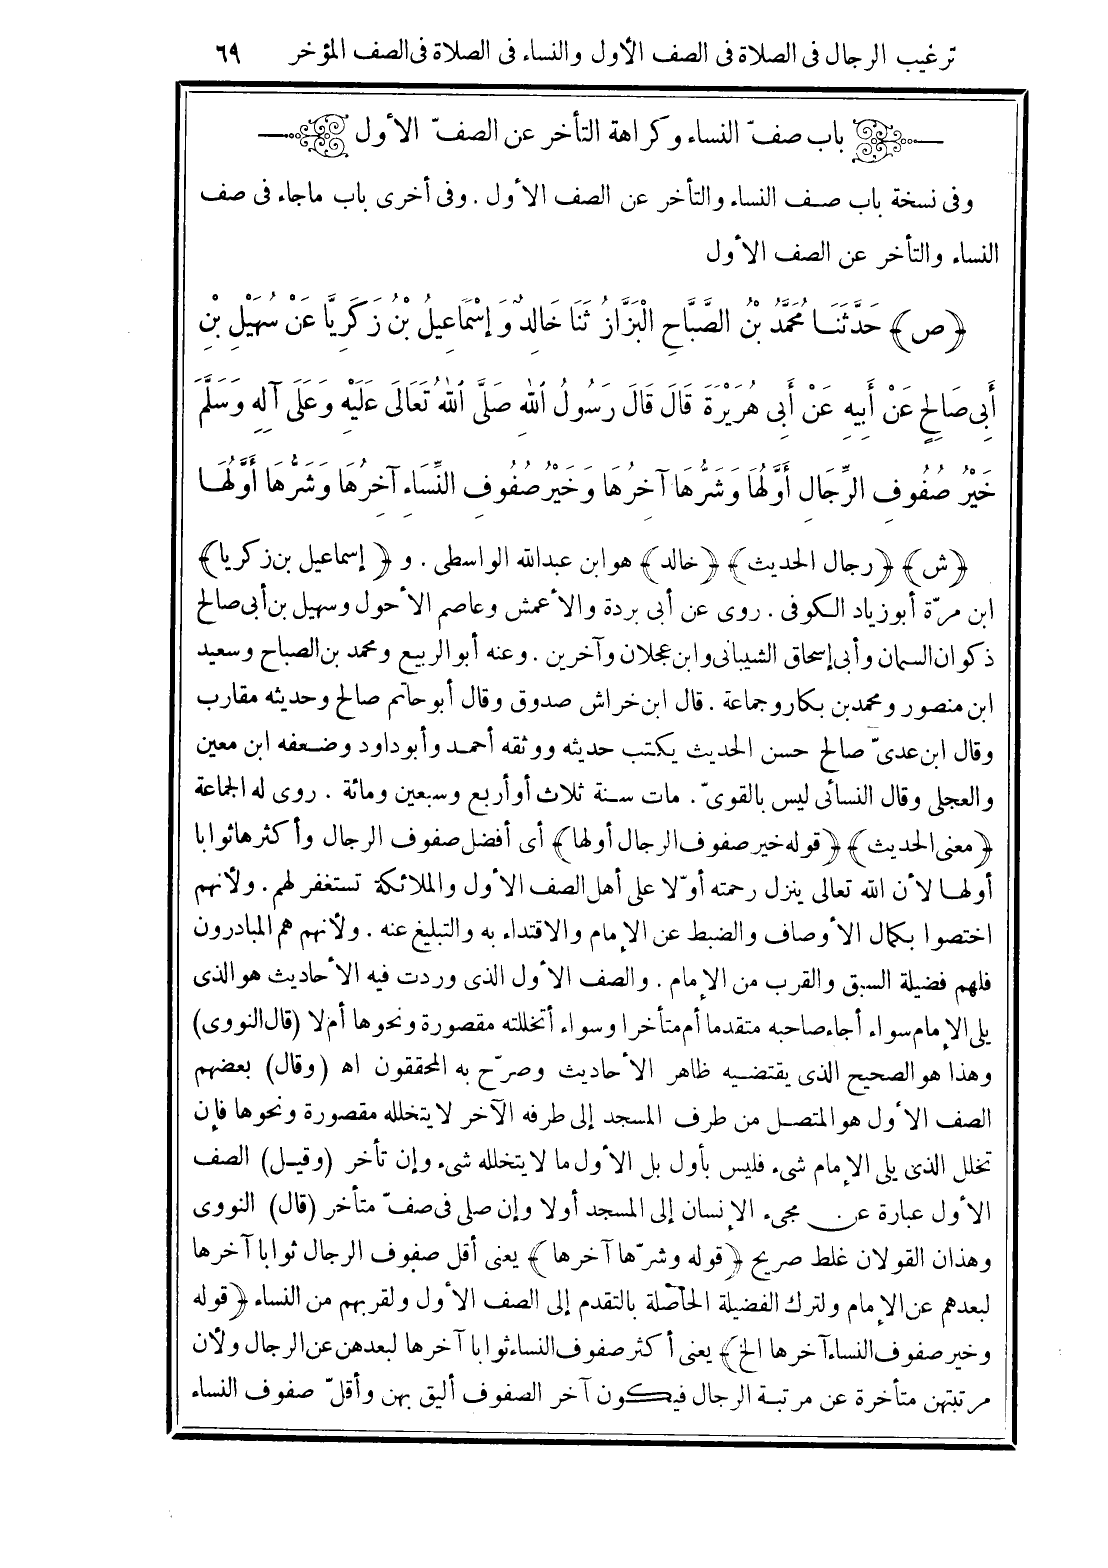 ترغيب الرجال فى الصلاة فى الصف الأول والنساء فى الصلاة فى الصف المؤخر ٦٩
باب صفّ النساء وكراهة التأخر عن الصفّ الأول
وفى نسخة باب صف النساء والتأخر عن الصف الأول . وفى أخرى باب ماجاء فى صف
النساء والتأخر عن الصف الأول
﴿ص﴾ حَدَّثَنَا مُحَمَّدُ بْنُ الصَّبَّاحِ الْبَزَّازُ ثَنَا خَالِدٌ وَإِسْمَاعِيلُ بْنُ زَكَرِيَّا عَنْ سُهَيْلِ بْنِ
أَبِى صَالِحٍ عَنْ أَبِيهِ عَنْ أَبِى هُرَيْرَةَ قَالَ قَالَ رَسُولُ اللهِ صَلَّى اللهُ تَعَالَى عَلَيْهِ وَعَلَى آلِهِ وَسَلَّمَ
خَيْرُ صُفُوفِ الرِّجَالِ أَوَّلُهَا وَشَرُّهَا آخِرُهَا وَخَيْرُ صُفُوفِ النِّسَاءِ آخِرُهَا وَشَرُّهَا أَوَّلُهَا
﴿ش﴾ ﴿رجال الحديث﴾ ﴿خالد﴾ هو ابن عبدالله الواسطى . و ﴿إسماعيل بن زكريا﴾
ابن مرّة أبو زياد الكوفى . روى عن أبى بردة والأعمش وعاصم الأحول وسهيل بن أبى صالح
ذكوان السمان وأبى إسحاق الشيبانى وابن عجلان وآخرين . وعنه أبو الربيع ومحمد بن الصباح وسعيد
ابن منصور ومحمد بن بكار وجماعة . قال ابن خراش صدوق وقال أبو حاتم صالح وحديثه مقارب
وقال ابن عدىّ صالح حسن الحديث يكتب حديثه ووثقه أحمد وأبو داود وضعفه ابن معين
والعجلى وقال النسائى ليس بالقوىّ . مات سنة ثلاث أو أربع وسبعين ومائة . روى له الجماعة
﴿معنى الحديث﴾ ﴿قوله خير صفوف الرجال أولها﴾ أى أفضل صفوف الرجال وأكثرها ثوابا
أولها لأن الله تعالى ينزل رحمته أوّلا على أهل الصف الأول والملائكة تستغفر لهم . ولأنهم
اختصوا بكمال الأوصاف والضبط عن الإمام والاقتداء به والتبليغ عنه . ولأنهم هم المبادرون
فلهم فضيلة السبق والقرب من الإمام . والصف الأول الذى وردت فيه الأحاديث هو الذى
يلى الإمام سواء أجاء صاحبه متقدما أم متأخرا وسواء أتخللته مقصورة ونحوها أم لا (قال النووى)
وهذا هو الصحيح الذى يقتضيه ظاهر الأحاديث وصرّح به المحققون اه (وقال) بعضهم
الصف الأول هو المتصل من طرف المسجد إلى طرفه الآخر لايتخلله مقصورة ونحوها فإن
تخلل الذى يلى الإمام شىء فليس بأول بل الأول ما لايتخلله شىء وإن تأخر (وقيل) الصف
الأول عبارة عن مجىء الإنسان إلى المسجد أولا وإن صلى فى صفّ متأخر (قال) النووى
وهذان القولان غلط صريح ﴿قوله وشرّها آخرها﴾ يعنى أقل صفوف الرجال ثوابا آخرها
لبعدهم عن الإمام ولترك الفضيلة الحاصلة بالتقدم إلى الصف الأول ولقربهم من النساء ﴿قوله
وخير صفوف النساء آخرها الخ﴾ يعنى أكثر صفوف النساء ثوابا آخرها لبعدهن عن الرجال ولأن
مرتبتهن متأخرة عن مرتبة الرجال فيكون آخر الصفوف أليق بهن وأقلّ صفوف النساء